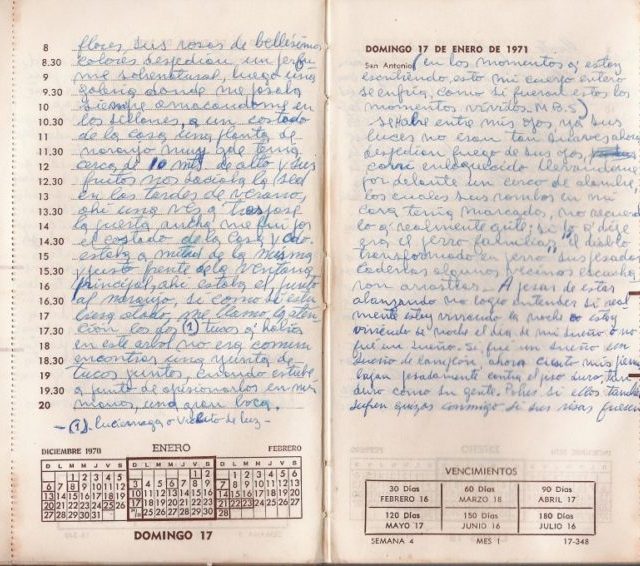 8 flores, sus rosas de bellísimos
8.30 colores despedían un perfu
9 me sobrenatural, luego una
9.30 galería donde me posaba
10 siempre amacandome en
10.30 los sillones, a un costado
11 de la casa una planta de
11.30 naranjo muy que tenía
12 cerca de 10 mts de alto y sus
12.30 frutos nos saciaba la sed
13 en las tardes de verano,
13.30 ahí una vez a traspasé
14 la puerta ancha me fui por
14.30 el costado de la casa y cdo.
15 estaba a mitad de la misma
15.30 y justo frente de la ventana
16 principal, ahí estaba el, junto
16.30 al naranjo, si como si estu
17 biera atado, me llamo la aten
17.30 ción los dos (1) tucos q' había
18 en este arbol no era comun
18.30 encontrar una yunta de
19 tucos juntos, cuando estube
19.30 a punto de aprisionarlos en mis
20 manos, una gran boca.
-(1). luciernaga o vichito de luz-
DICIEMBRE 1970 ENERO FEBRERO
D L M M J V S D L M M J V S D L M M J V S
1 2 3 4 5 1 2 1 2 3 4 5 6
6 7 8 9 10 11 12 3 4 5 6 7 8 9 7 8 9 10 11 12 13
13 14 15 16 17 18 19 10 11 12 13 14 15 16 14 15 16 17 18 19 20
20 21 22 23 24 25 26 17 18 19 20 21 22 23 21 22 23 24 25 26 27
27 28 29 30 31 25 26 27 28 29 30 28
DOMINGO 17
DOMINGO 17 DE ENERO DE 1971
San Antonio (en los momentos q' estoy
escribiendo, esto mi cuerpo entero
se enfría, como si fueran estos los
momentos vividos. M.B.S)
se abre entre mis ojos, ya sus
luces no eran tan suaves ahora
despedían fuego de sus ojos,
corri enloquecido llevandome
por delante un cerco de alambre
los cuales sus rombos en mi
cara tenía marcados, no recuer
do q' realmente grite; si lo q' dije
era el perro familiar, el diablo
transformado en perro sus pesadas
cadenas algunos vecinos escucha
ron arrastrar. A pesar de estar
alcanzando no logro entender si real
mente estoy viviendo la noche o estoy
viviendo de noche el día de mi sueño o no
fue un sueño. Si fue un sueño un
sueño de , ahora siento mis pies
bajan pesadamente contra el piso duro, tan
duro como su gente. Pobres si ellos también
sufren quizas conmigo si sus risas fueran
VENCIMIENTOS
30 Días 60 Días 90 Días
FEBRERO 16 MARZO 18 ABRIL 17
120 Días 150 Días 180 Días
MAYO 17 JUNIO 16 JULIO 16
SEMANA 4 MES 1 17-348